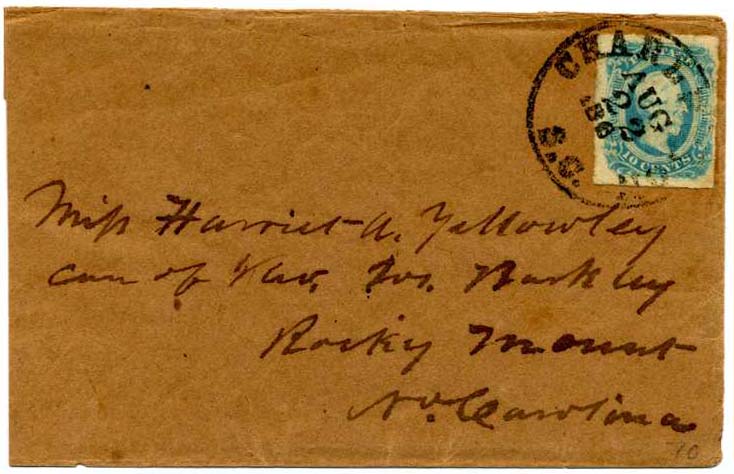 CHARLE
AUG
22
186
S.C.
10 CENTS
Miss Harriet A. Yellowley
care of Rev. Jos. Barkley
Rocky Mount
No. Carolina
70